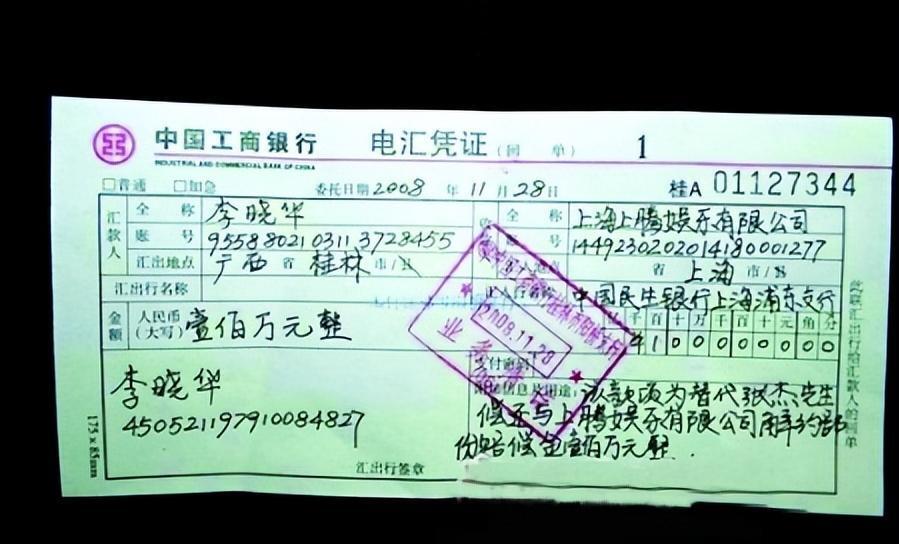 中国工商银行 电汇凭证(回 单) 1
INDUSTRIAL AND COMMERCIAL BANK OF CHINA
□普通 □加急 委托日期2008 年 11 月 28 日 桂A 01127344
汇款人 全 称 李晓华
账 号 9558802103113728455
汇出地点 广西 省 桂林 市/县
全 称 上海上腾娱乐有限公司
账 号 1449230202014180001277
省 上海 市/县
汇出行名称
汇入行名称 中国民生银行上海浦东支行
金额 人民币(大写) 壹佰万元整
千 百 十 万 千 百 十 元 角 分
¥ 1 0 0 0 0 0 0 0 0
2008.11.28
业务
支付密码
李晓华
450521197910084827
附加信息及用途: 该款项为替代张杰先生
偿还与上腾娱乐有限公司解约部
份赔偿金壹佰万元整.
汇出行签章
175×85mm
此联汇出行给汇款人的回单